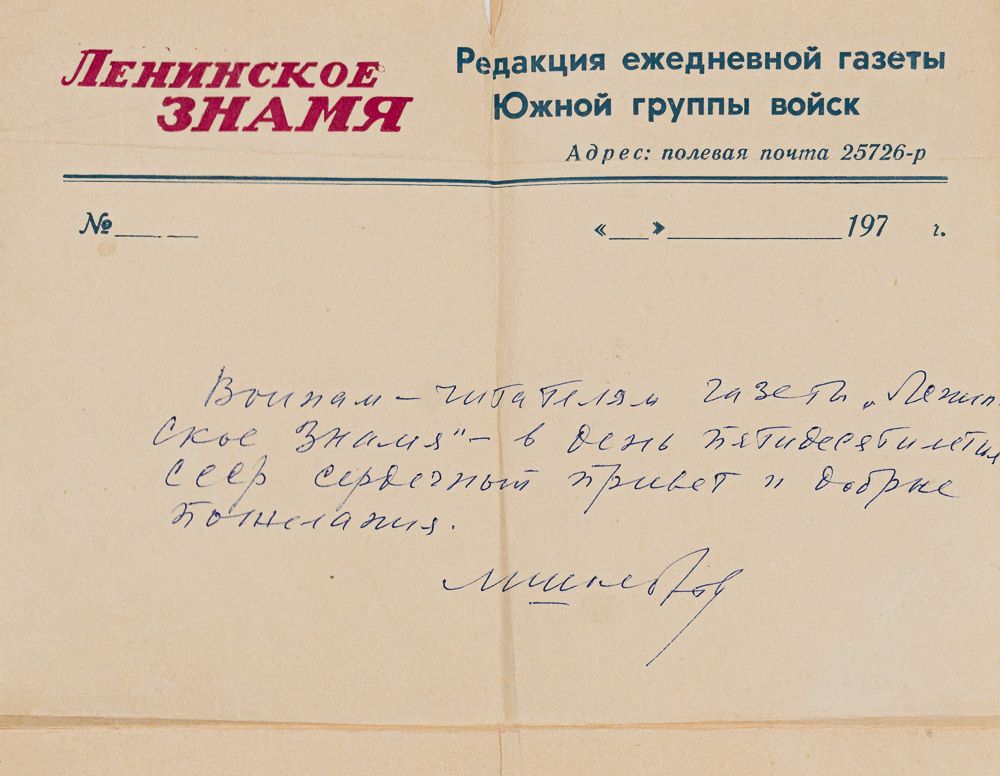 ЛЕНИНСКОЕ
ЗНАМЯ
Редакция ежедневной газеты
Южной группы войск
Адрес: полевая почта 25726-р
№
« » 197 г.
Воинам – читателям газеты „Ленин-
ское Знамя" – в день пятидесятилетия
СССР сердечный привет и добрые
пожелания.